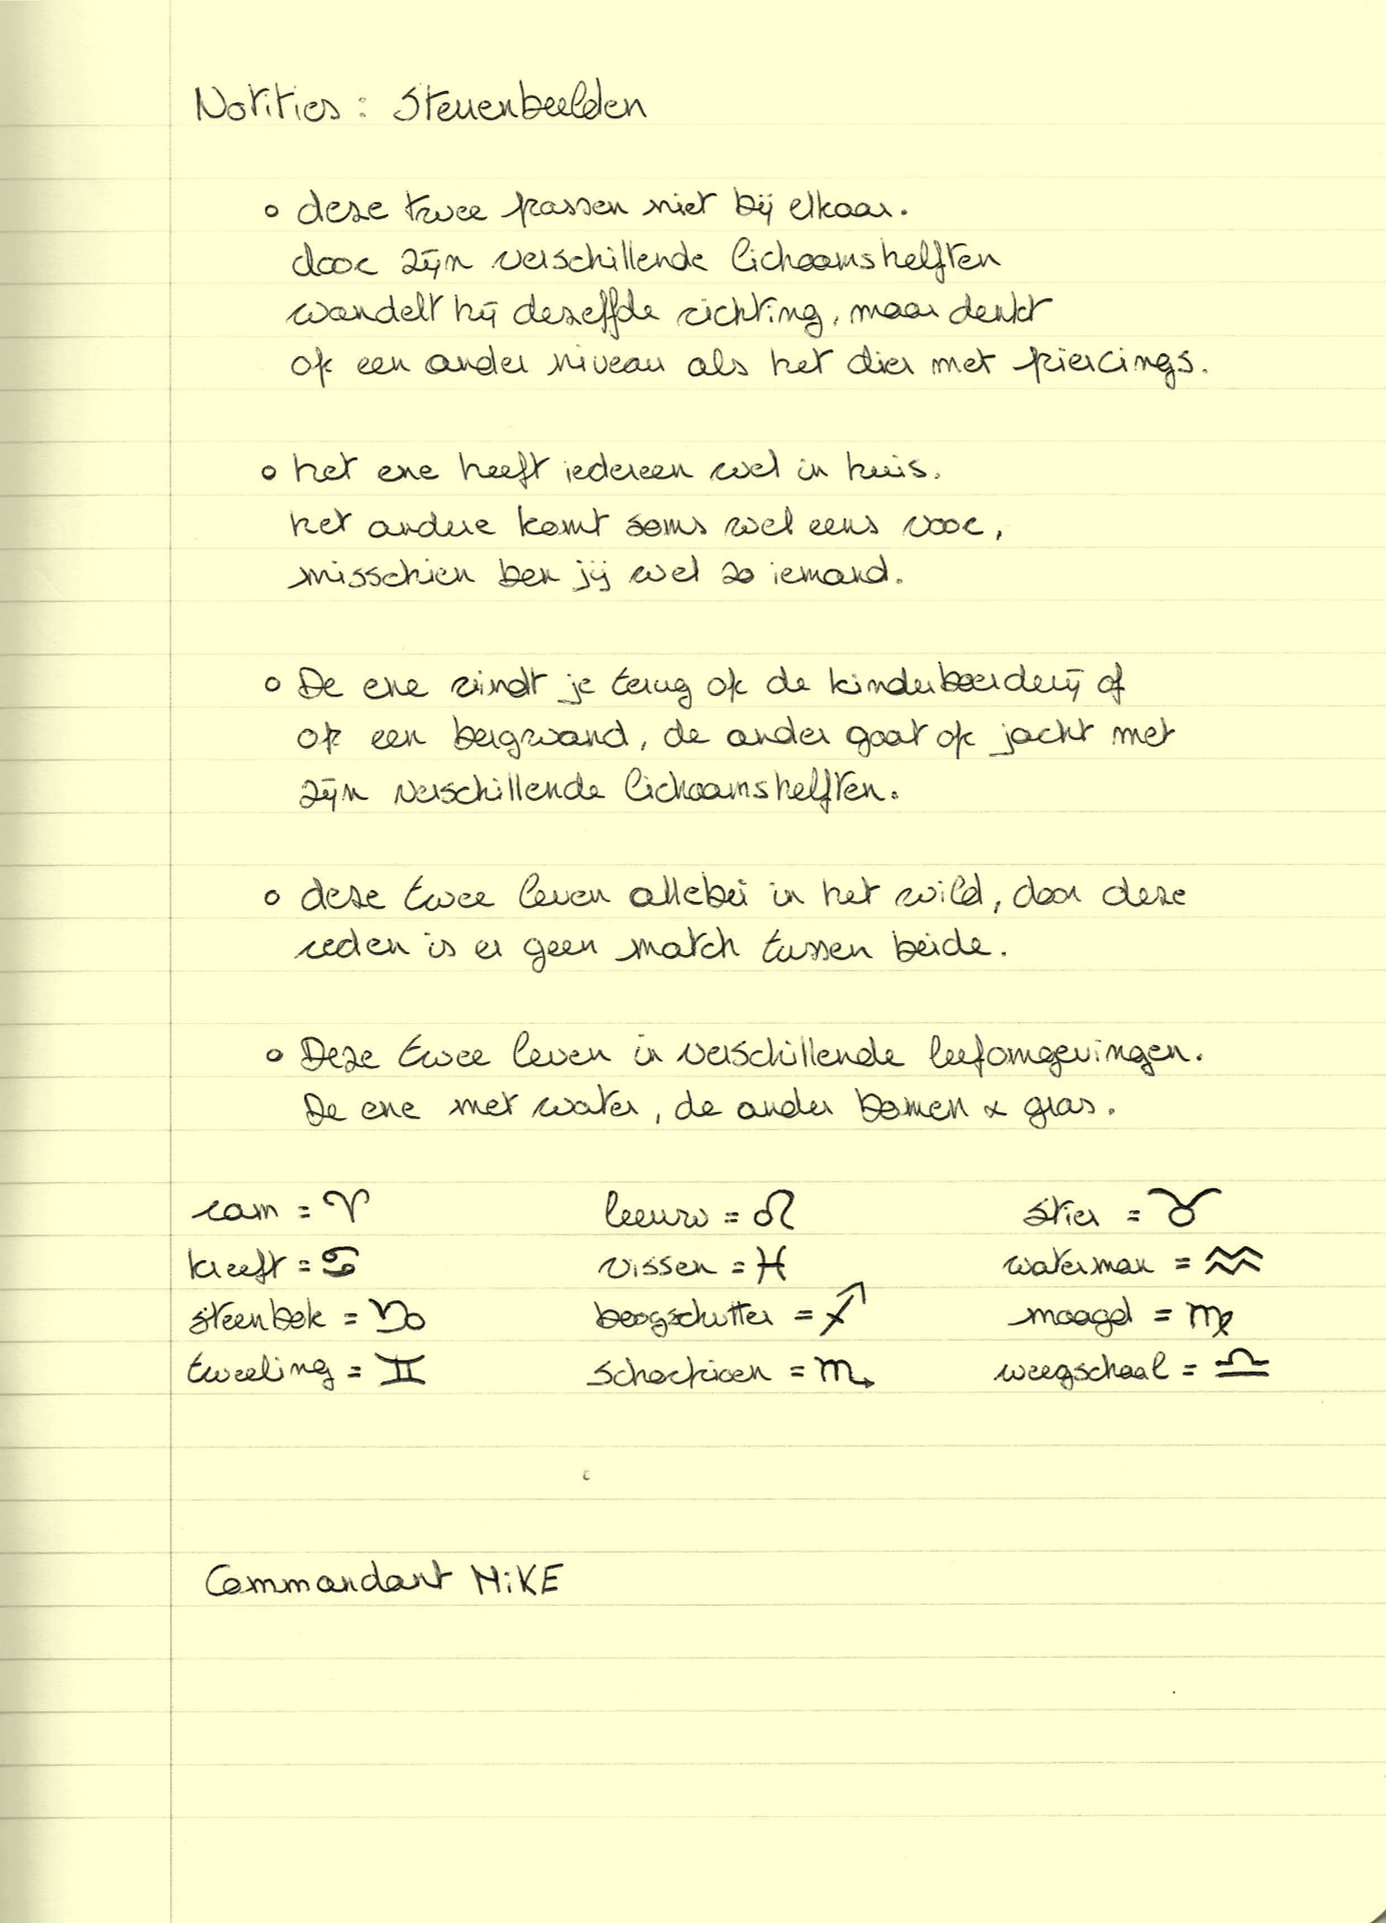 Notities : Sterrenbeelden
○ deze twee passen niet bij elkaar.
door zijn verschillende lichaamshelften
wandelt hij dezelfde richting, maar denkt
op een ander niveau als het dier met piercings.
○ het ene heeft iedereen wel in huis.
het andere komt soms wel eens voor,
misschien ben jij wel zo iemand.
○ De ene vindt je terug op de kinderboerderij of
op een bergwand, de ander gaat op jacht met
zijn verschillende lichaamshelften.
○ deze twee leven allebei in het wild, door deze
reden is er geen match tussen beide.
○ Deze twee leven in verschillende leefomgevingen.
De ene met water, de ander bomen & gras.
ram = ♈ leeuw = ♌ stier = ♉
kreeft = ♋ vissen = ♓ waterman = ♒
steenbok = ♑ boogschutter = ♐ maagd = ♍
tweeling = ♊ schorpioen = ♏ weegschaal = ♎
Commandant MiKE